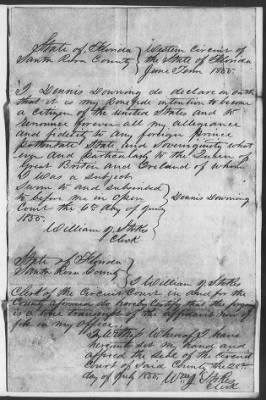 State of Florida } Western Circuit of
Santa Rosa County } the State of Florida
June Term 1855.
I Dennis Downing do declare on oath
that it is my bonafide intention to become
a citizen of the United States and to
renounce forever all my allegiance
and fidelity to any foreign Prince
Potentate State and Sovereignty what
ever and Particularly to the Queen of
Great Britain and Ireland of whom
I was a subject.
Sworn to and subscribed
to before me in Open } Dennis Downing
Court the 6th day of
1855.
William W Stokes
Clerk
State of Florida
Santa Rosa County
I William W Stokes
Clerk of the Circuit Court in and for the
County aforesaid do hereby Certify that the
is a true transcript of the affidavit now of
file in my Office
In Witness Whereof I have
hereunto set my hand and
affixed the Seal of the Circuit
Court of Said County the
day of July 1855. Wm W Stokes
Clerk